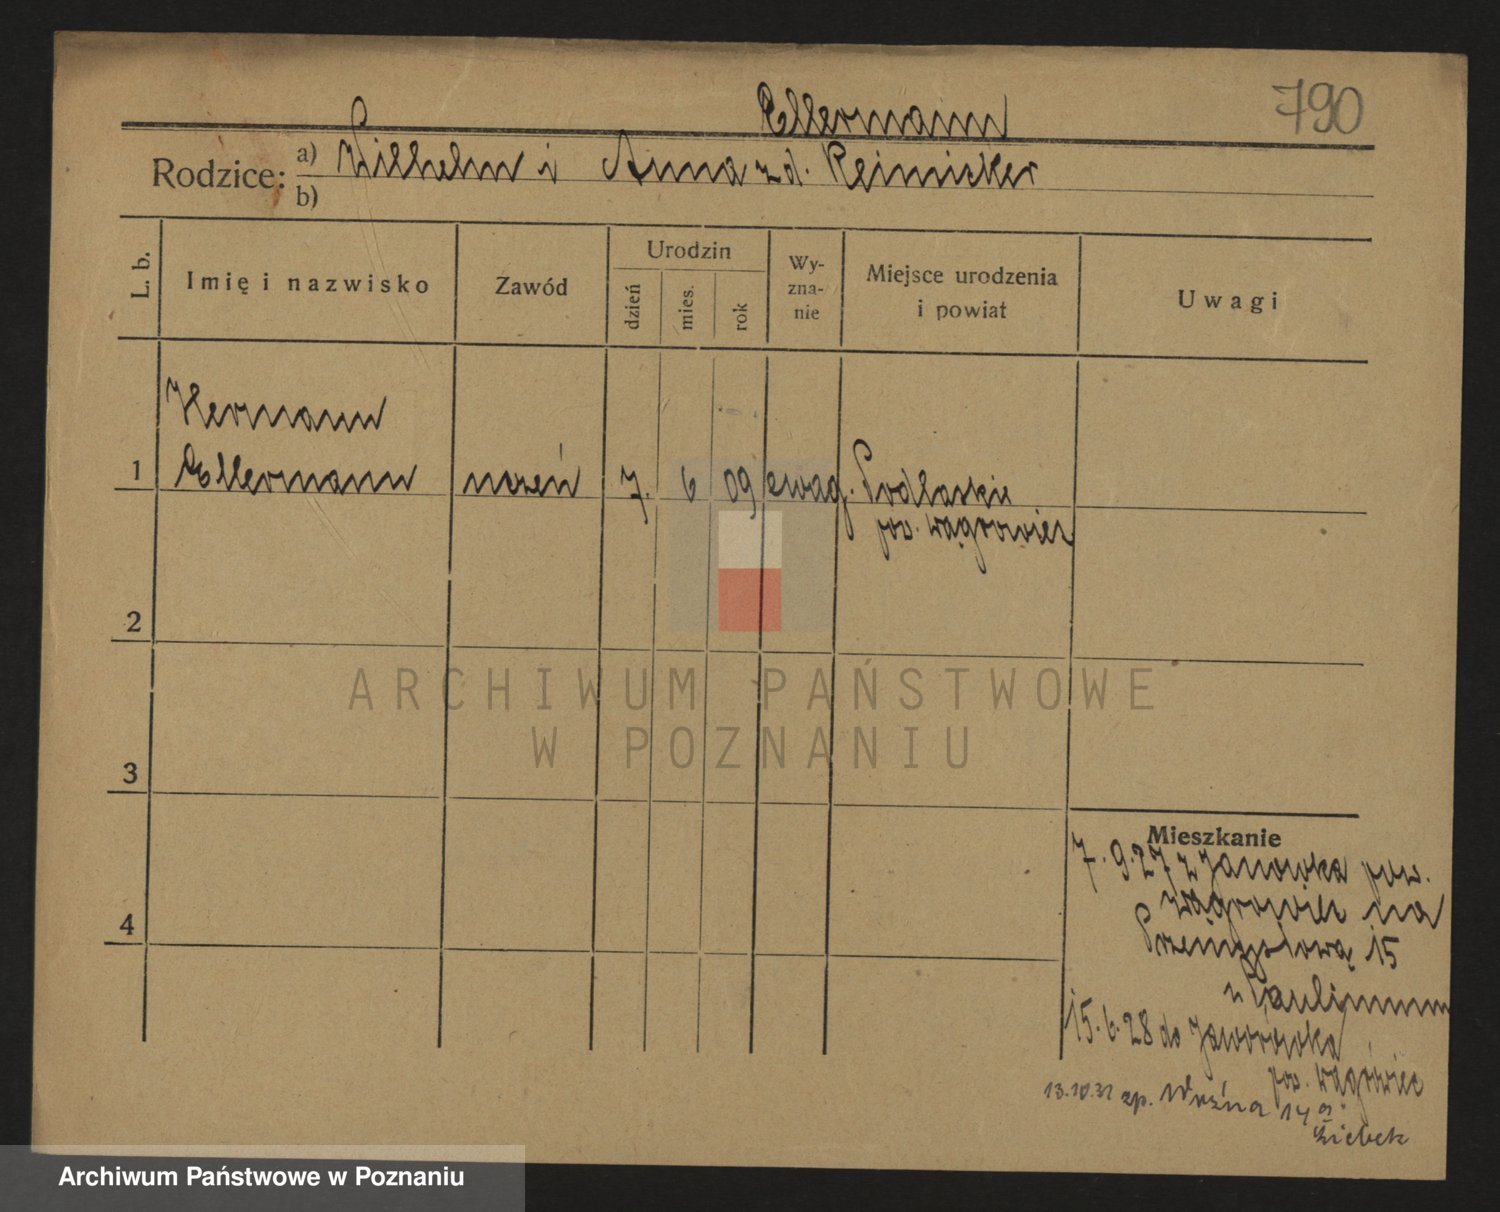 Ellermann
790
Rodzice:
a) Wilhelm i Anna zd. Reinicker
b)
L. b.
Imię i nazwisko
Zawód
Urodzin
dzień
mies.
rok
Wy-
zna-
nie
Miejsce urodzenia
i powiat
Uwagi
Hermann
1 Ellermann uczeń 7. 6 09 ewag. Podlaskie
pow. wągrowiec
2
3
4
Mieszkanie
7.9.27 z Janowka pow.
wągrowiec na
Przemysłową 15
u Paulinum
15.6.28 do Jaworówka
pow. wągrowiec
13.10.31 zp. 14
ARCHIWUM PAŃSTWOWE
W POZNANIU
Archiwum Państwowe w Poznaniu